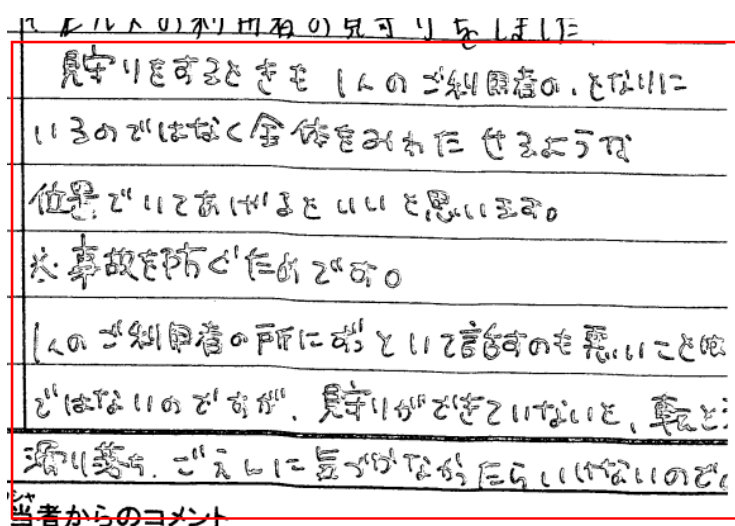 の利用者の見守りをしました
見守りをするときも 1人のご利用者の、となりに
いるのではなく全体をみわたせるような
位置でいてあげるといいと思います。
※事故を防ぐためです。
1人のご利用者の所にずっといて話すのも悪いこと
ではないのですが、見守りができていないと、転と
滑り落ち、ごえんに気づかなかったらいけないので
当者からのコメント
シャ